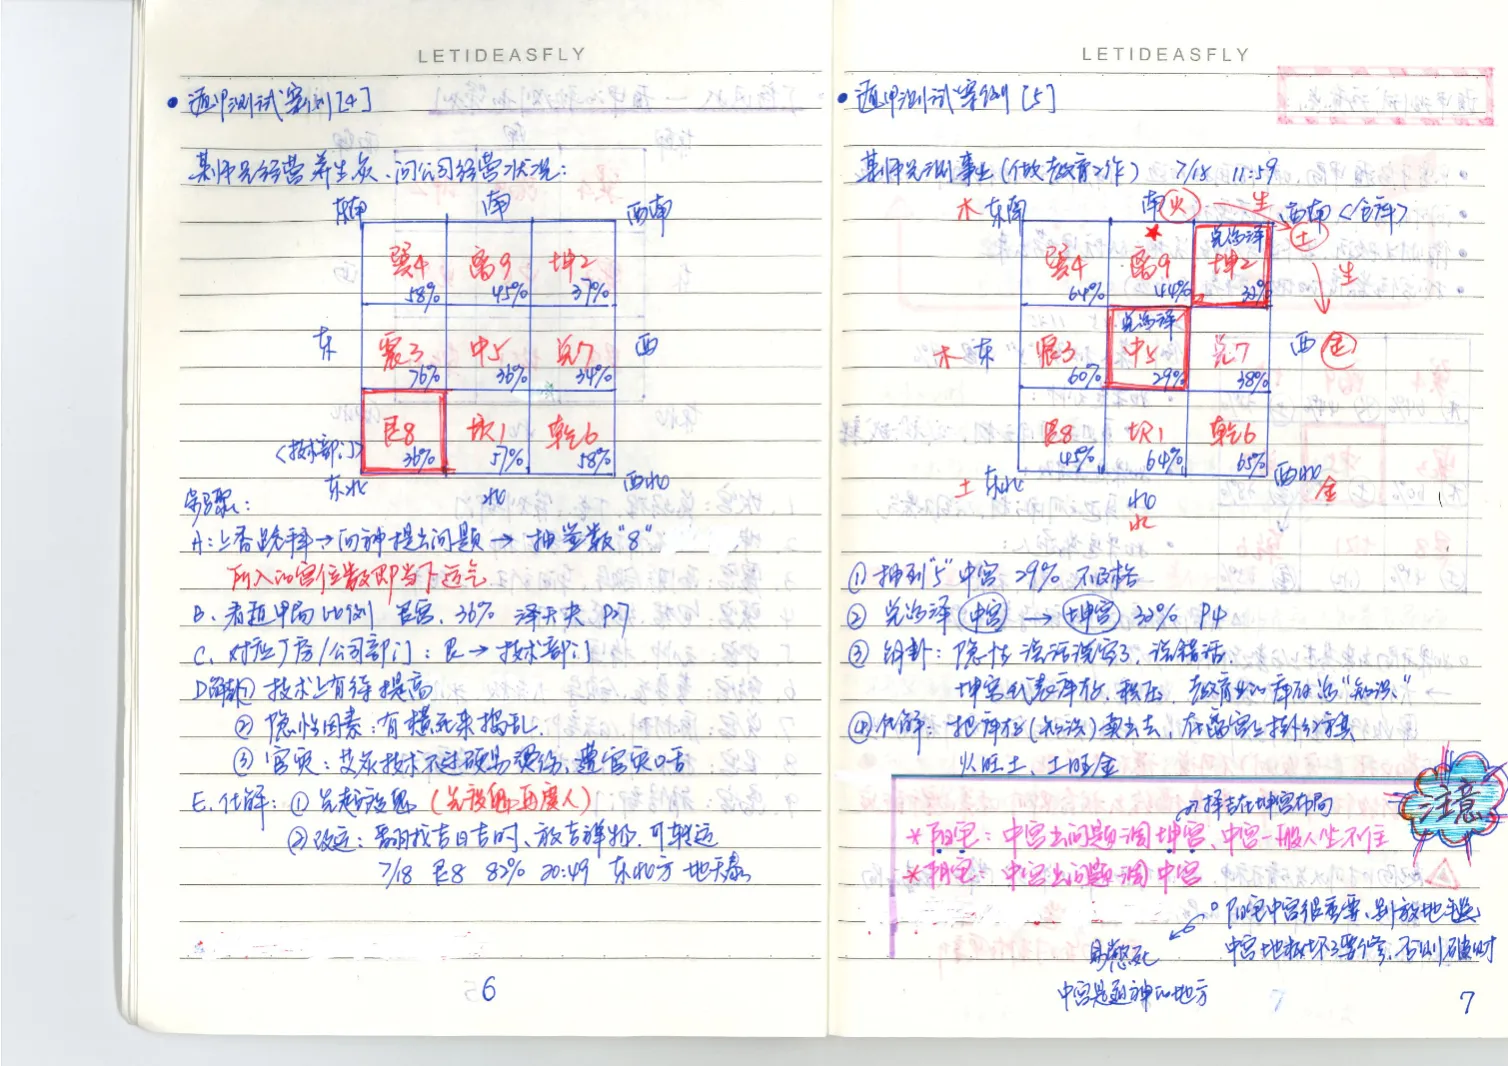 LETIDEASFLY
• 遁甲测试案例[4]
某师兄经营养生灸、问公司经营状况:
东南 南 西南
巽4 离9 坤2
58% 45% 37%
东 震3 中5 兑7 西
76% 36% 34%
艮8 坎1 乾6
<技术部门> 36% 57% 58%
东北 北 西北
步骤:
A:上香跪拜→问神提出问题→抽签数"8"
所入的宫位数即当下运气
B. 看遁甲局比例 艮宫. 36% 泽天夬 P27
C. 对应厂房/公司部门: 艮→技术部门
D解卦① 技术上有待提高
② 隐性因素:有横死来捣乱.
③ 官灾:艾灸技术不过硬易烫伤、遭官灾口舌
E. 化解:① 先超渡鬼(先渡鬼再度人)
② 改运:需要找吉日吉时、放吉祥物.可转运
7/18 艮8 82% 20:49 东北方 地天泰
6
LETIDEASFLY
• 遁甲测试案例[5]
某师兄测事业(做教育工作) 7/18 11:59
木 东南 南 火 生 西南<仓库>
兑为泽 土
巽4 离9 坤2
64% 44% 32% 生
兑为泽
木 东 震3 中5 兑7 西 金
60% 29% 38%
艮8 坎1 乾6
45% 64% 65%
土 东北 北 西北
水 金
① 抽到"5"中宫 29% 不及格
② 兑为泽 中宫 → 坤宫 32% P4
③ 解卦:隐性 说话泄密了、说错话.
坤宫代表库存、积压. 教育业的库存为"知识."
④化解:把库存(知识)卖出去,在离宫上挂
火旺土、土旺金
择吉在坤宫布局
注意
*阳宅:中宫出问题调坤宫、中宫一般人坐不住
*阴宅:中宫出问题调中宫
阳宅中宫很重要、别放地毯
易憋死 中宫地板坏了要修、否则破财
中宫是通神的地方
7